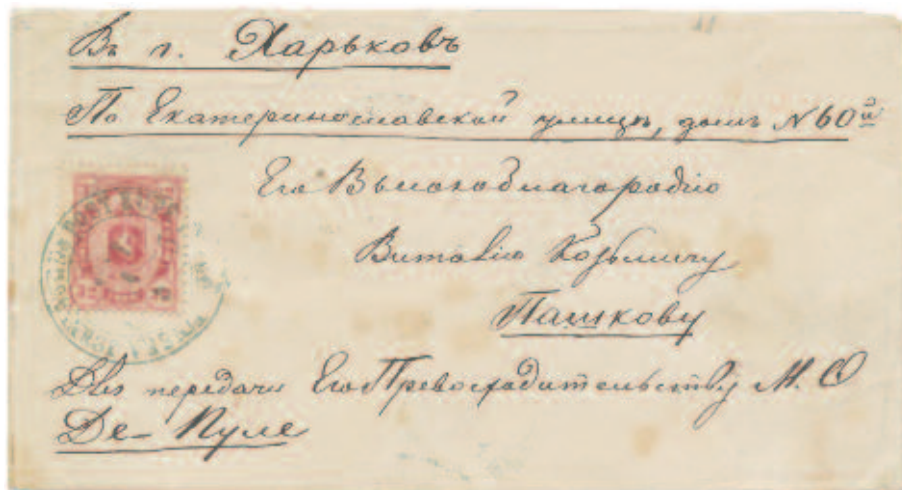 Въ г. Харьковъ
По Екатеринославской улицѣ, домъ № 60й
Его Высокоблагородію
Виталію Козьмичу
Пашкову
Для передачи Его Превосходительству М. Ѳ
Де-Пуле